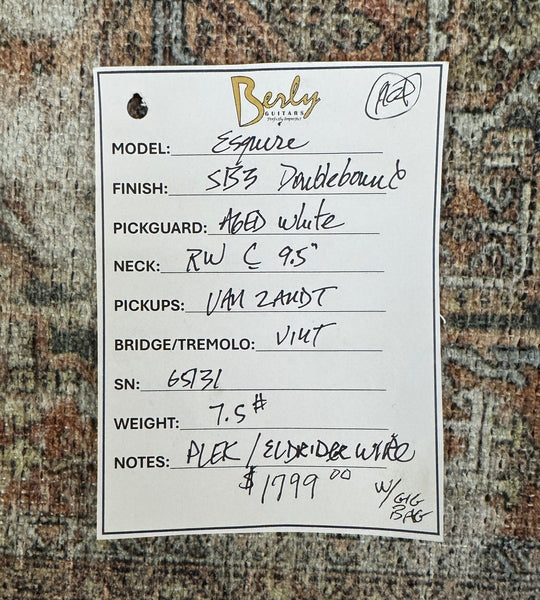 Berly
GUITARS
Perfectly Imperfect
MODEL: Esquire
FINISH: SB3 Doublebound
PICKGUARD: AGED White
NECK: RW C 9.5"
PICKUPS: VAN ZANDT
BRIDGE/TREMOLO: VINT
SN: 65131
WEIGHT: 7.5#
NOTES: PLEK / ELDRIDGE WIRE
$1799 00
W/ GIG
BAG